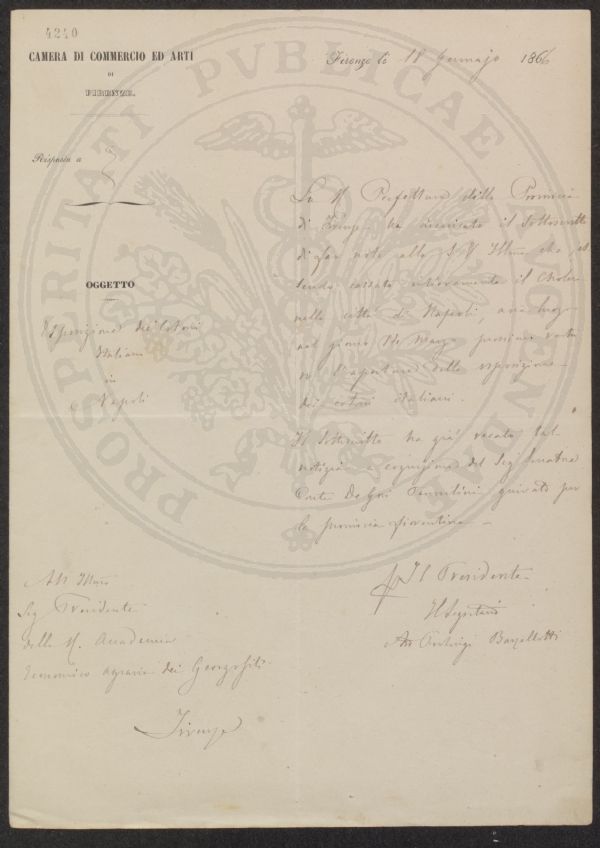 4240
CAMERA DI COMMERCIO ED ARTI
DI
FIRENZE.
Firenze li 18 Gennajo 1866
Risposta a
OGGETTO
Esposizione dei Cotoni
Italiani
in
Napoli
PROSPERITATI PVBLICAE
La R. Prefettura della Provincia
di Firenze ha incaricato il Sottoscritto
di far noto alla S. V. Illma che, es
sendo cessato interamente il Cholera
nella città di Napoli, avrà luogo
nel giorno
Marzo prossimo
l'apertura della esposizione
dei cotoni italiani.
Il Sottoscritto ha già recato tal
notizia a cognizione del Sigr Senatore
Conte De
per
la provincia fiorentina
Il Presidente
Il Segretario
Barzellotti
All' Illmo
Sig Presidente
della R. Accademia
Economico agraria dei Georgofili
Firenze